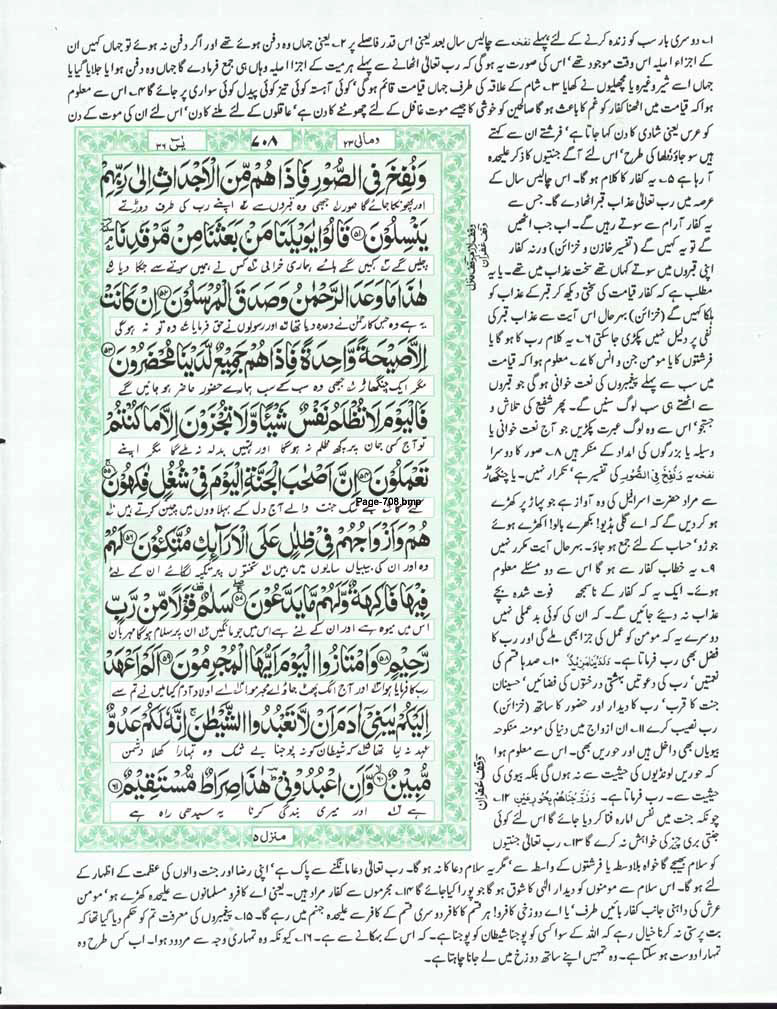 ۱۔ دوسری بار سب کو زندہ کرنے کے لئے پہلے نفخہ سے چالیس سال بعد یعنی اس قدر فاصلے پر ۲۔ یعنی جہاں وہ دفن ہوئے تھے اور اگر دفن نہ ہوئے تو جہاں کہیں ان
کے اجزاء اصلیہ اس وقت موجود تھے' اس کی صورت یہ ہو گی کہ رب تعالیٰ اٹھانے سے پہلے ہر میت کے اجزا اصلیہ وہاں ہی جمع فرما دے گا جہاں وہ دفن ہوا یا جلایا گیا یا
جہاں اسے شیر وغیرہ یا مچھلیوں نے کھایا ۳۔ شام کے علاقہ کی طرف جہاں قیامت قائم ہو گی' کوئی آہستہ کوئی تیز کوئی پیدل کوئی سواری پر جائے گا ۴۔ اس سے معلوم
ہوا کہ قیامت میں اٹھنا کفار کو غم کا باعث ہو گا صالحین کو خوشی کا جیسے موت غافل کے لئے چھوٹنے کا دن ہے' عاقلوں کے لئے ملنے کا دن' اس لئے ان کی موت کے دن
کو عرس یعنی شادی کا دن کہا جاتا ہے' فرشتے ان سے کہتے
ہیں سو جاؤ دولھا کی طرح' اس لئے آگے جنتیوں کا ذکر علیحدہ
آ رہا ہے ۵۔ یہ کفار کا کلام ہو گا۔ اس چالیس سال کے
عرصہ میں رب تعالیٰ عذاب قبر اٹھا دے گا۔ جس سے
یہ کفار آرام سے سوتے رہیں گے۔ اب جب اٹھیں
گے تو یہ کہیں گے (تفسیر خازن و خزائن) ورنہ کفار
اپنی قبروں میں سوتے کہاں تھے سخت عذاب میں تھے۔ یا یہ
مطلب ہے کہ کفار قیامت کی سختی دیکھ کر قبر کے عذاب کو
ہلکا کہیں گے (خزائن) بہرحال اس آیت سے عذاب قبر کی
نفی پر دلیل نہیں پکڑی جا سکتی ۶۔ یہ کلام رب کا ہو گا یا
فرشتوں کا یا مومن جن و انس کا ۷۔ معلوم ہوا کہ قیامت
میں سب سے پہلے پیغمبروں کی نعت خوانی ہو گی جو قبروں
سے اٹھتے ہی سب لوگ سنیں گے۔ پھر شفیع کی تلاش و
جستجو' اس سے وہ لوگ عبرت پکڑیں جو آج نعت خوانی یا
وسیلہ یا بزرگوں کی امداد کے منکر ہیں ۸۔ صور کا دوسرا
نفخہ یہ وَنُفِخَ فِی الصُّوْرِ کی تفسیر ہے' تکرار نہیں۔ یا چنگھاڑ
سے مراد حضرت اسرافیل کی وہ آواز ہے جو پہاڑ پر کھڑے
ہو کر دیں گے کہ اے گلی ہڈیو! بکھرے بالو! اکھڑے ہوئے
جوڑو' حساب کے لئے جمع ہو جاؤ۔ بہرحال آیت مکرر نہیں
۹۔ یہ خطاب کفار سے ہو گا اس سے دو مسئلے معلوم
ہوئے۔ ایک یہ کہ کفار کے ناسمجھ فوت شدہ بچے
عذاب نہ دیئے جائیں گے۔ کہ ان کی کوئی بدعملی نہیں
دوسرے یہ کہ مومن کو عمل کی جزا بھی ملے گی اور رب کا
فضل بھی رب فرماتا ہے۔ وَلَدَیْنَا مَزِیْدٌ ۱۰۔ صدہا قسم کی
نعمتیں' رب کی دعوتیں بہشتی درختوں کی فضائیں' حسینان
جنت کا قرب' رب کا دیدار اور حضور کا ساتھ (خزائن)
رب نصیب کرے ۱۱۔ ان ازواج میں دنیا کی مومنہ منکوحہ
بیویاں بھی داخل ہیں اور حوریں بھی۔ اس سے معلوم ہوا
کہ حوریں لونڈیوں کی حیثیت سے نہ ہوں گی بلکہ بیوی کی
حیثیت سے۔ رب فرماتا ہے۔ وَزَوَّجْنٰهُمْ بِحُوْرٍ عِیْنٍ ۱۲۔
چونکہ جنت میں نفس امارہ فنا کر دیا جائے گا اس لئے کوئی
جنتی بری چیز کی خواہش نہ کرے گا ۱۳۔ رب تعالیٰ جنتیوں
کو سلام بھیجے گا خواہ بلاوسطہ یا فرشتوں کے واسطے سے' مگر یہ سلام دعا کا نہ ہو گا۔ رب تعالیٰ دعا مانگنے سے پاک ہے' اپنی رضا اور جنت والوں کی عظمت کے اظہار کے
لئے ہو گا۔ اس سلام سے مومنوں کو دیدار الٰہی کا شوق ہو گا جو پورا کیا جائے گا ۱۴۔ مجرموں سے کفار مراد ہیں۔ یعنی اے کافرو مسلمانوں سے علیحدہ کھڑے ہو' مومن
عرش کی داہنی جانب کفار بائیں طرف' یا اے دوزخی کافرو! ہر قسم کا کافر دوسری قسم کے کافر سے علیحدہ جہنم میں رہے گا۔ ۱۵۔ پیغمبروں کی معرفت تم کو حکم دیا گیا تھا کہ
بت پرستی نہ کرنا خیال رہے کہ اللہ کے سوا کسی کو پوجنا شیطان کو پوجنا ہے۔ کہ اس کے بہکانے سے ہے۔ ۱۶۔ کیونکہ وہ تمہاری وجہ سے مردود ہوا۔ اب کس طرح وہ
تمہارا دوست ہو سکتا ہے۔ وہ تمہیں اپنے ساتھ دوزخ میں لے جانا چاہتا ہے۔
یٰسٓ ۳۶
۷۰۸
ومالی ۲۳
وَنُفِخَ فِی الصُّوْرِ فَاِذَا هُمْ مِّنَ الْاَجْدَاثِ اِلٰى رَبِّهِمْ
اور پھونکا جائے گا صور جبھی وہ قبروں سے اپنے رب کی طرف دوڑتے
یَنْسِلُوْنَ ۵۱ قَالُوْا یٰوَیْلَنَا مَنْۢ بَعَثَنَا مِنْ مَّرْقَدِنَا
چلیں گے کہیں گے ہائے ہماری خرابی کس نے ہمیں سوتے سے جگا دیا
هٰذَا مَا وَعَدَ الرَّحْمٰنُ وَصَدَقَ الْمُرْسَلُوْنَ ۵۲ اِنْ كَانَتْ
یہ ہے وہ جس کا رحمٰن نے وعدہ دیا تھا اور رسولوں نے حق فرمایا وہ تو نہ ہو گی
اِلَّا صَیْحَةً وَّاحِدَةً فَاِذَا هُمْ جَمِیْعٌ لَّدَیْنَا مُحْضَرُوْنَ ۵۳
مگر ایک چنگھاڑ جبھی وہ سب کے سب ہمارے حضور حاضر ہو جائیں گے
فَالْیَوْمَ لَا تُظْلَمُ نَفْسٌ شَیْئًا وَّلَا تُجْزَوْنَ اِلَّا مَا كُنْتُمْ
تو آج کسی جان پر کچھ ظلم نہ ہوگا اور تمہیں بدلہ نہ ملے گا مگر اپنے
تَعْمَلُوْنَ ۵۴ اِنَّ اَصْحٰبَ الْجَنَّةِ الْیَوْمَ فِیْ شُغُلٍ فٰكِهُوْنَ ۵۵
جنت والے آج دل کے بہلاووں میں چین کرتے ہیں
Page-708.bmp
هُمْ وَاَزْوَاجُهُمْ فِیْ ظِلٰلٍ عَلَى الْاَرَآىِٕكِ مُتَّكِـُٔوْنَ ۵۶ لَهُمْ
وہ اور ان کی بیبیاں سایوں میں ہیں تختوں پر تکیہ لگائے ان کے لئے
فِیْهَا فَاكِهَةٌ وَّلَهُمْ مَّا یَدَّعُوْنَ ۵۷ سَلٰمٌ قَوْلًا مِّنْ رَّبٍّ
اس میں میوہ ہے اور ان کے لئے ہے اس میں جو مانگیں ان پر سلام ہوگا مہربان
رَّحِیْمٍ ۵۸ وَامْتَازُوا الْیَوْمَ اَیُّهَا الْمُجْرِمُوْنَ ۵۹ اَلَمْ اَعْهَدْ
رب کا فرمایا ہوا اور آج الگ پھٹ جاؤ اے مجرمو اے اولاد آدم کیا میں نے تم سے
اِلَیْكُمْ یٰبَنِیْۤ اٰدَمَ اَنْ لَّا تَعْبُدُوا الشَّیْطٰنَ اِنَّهٗ لَكُمْ عَدُوٌّ
عہد نہ لیا تھا کہ شیطان کو نہ پوجنا بے شک وہ تمہارا کھلا دشمن
مُّبِیْنٌ ۶۰ وَّاَنِ اعْبُدُوْنِیْ هٰذَا صِرَاطٌ مُّسْتَقِیْمٌ ۶۱
ہے اور میری بندگی کرنا یہ سیدھی راہ ہے
منزل ۵
وقف غفران